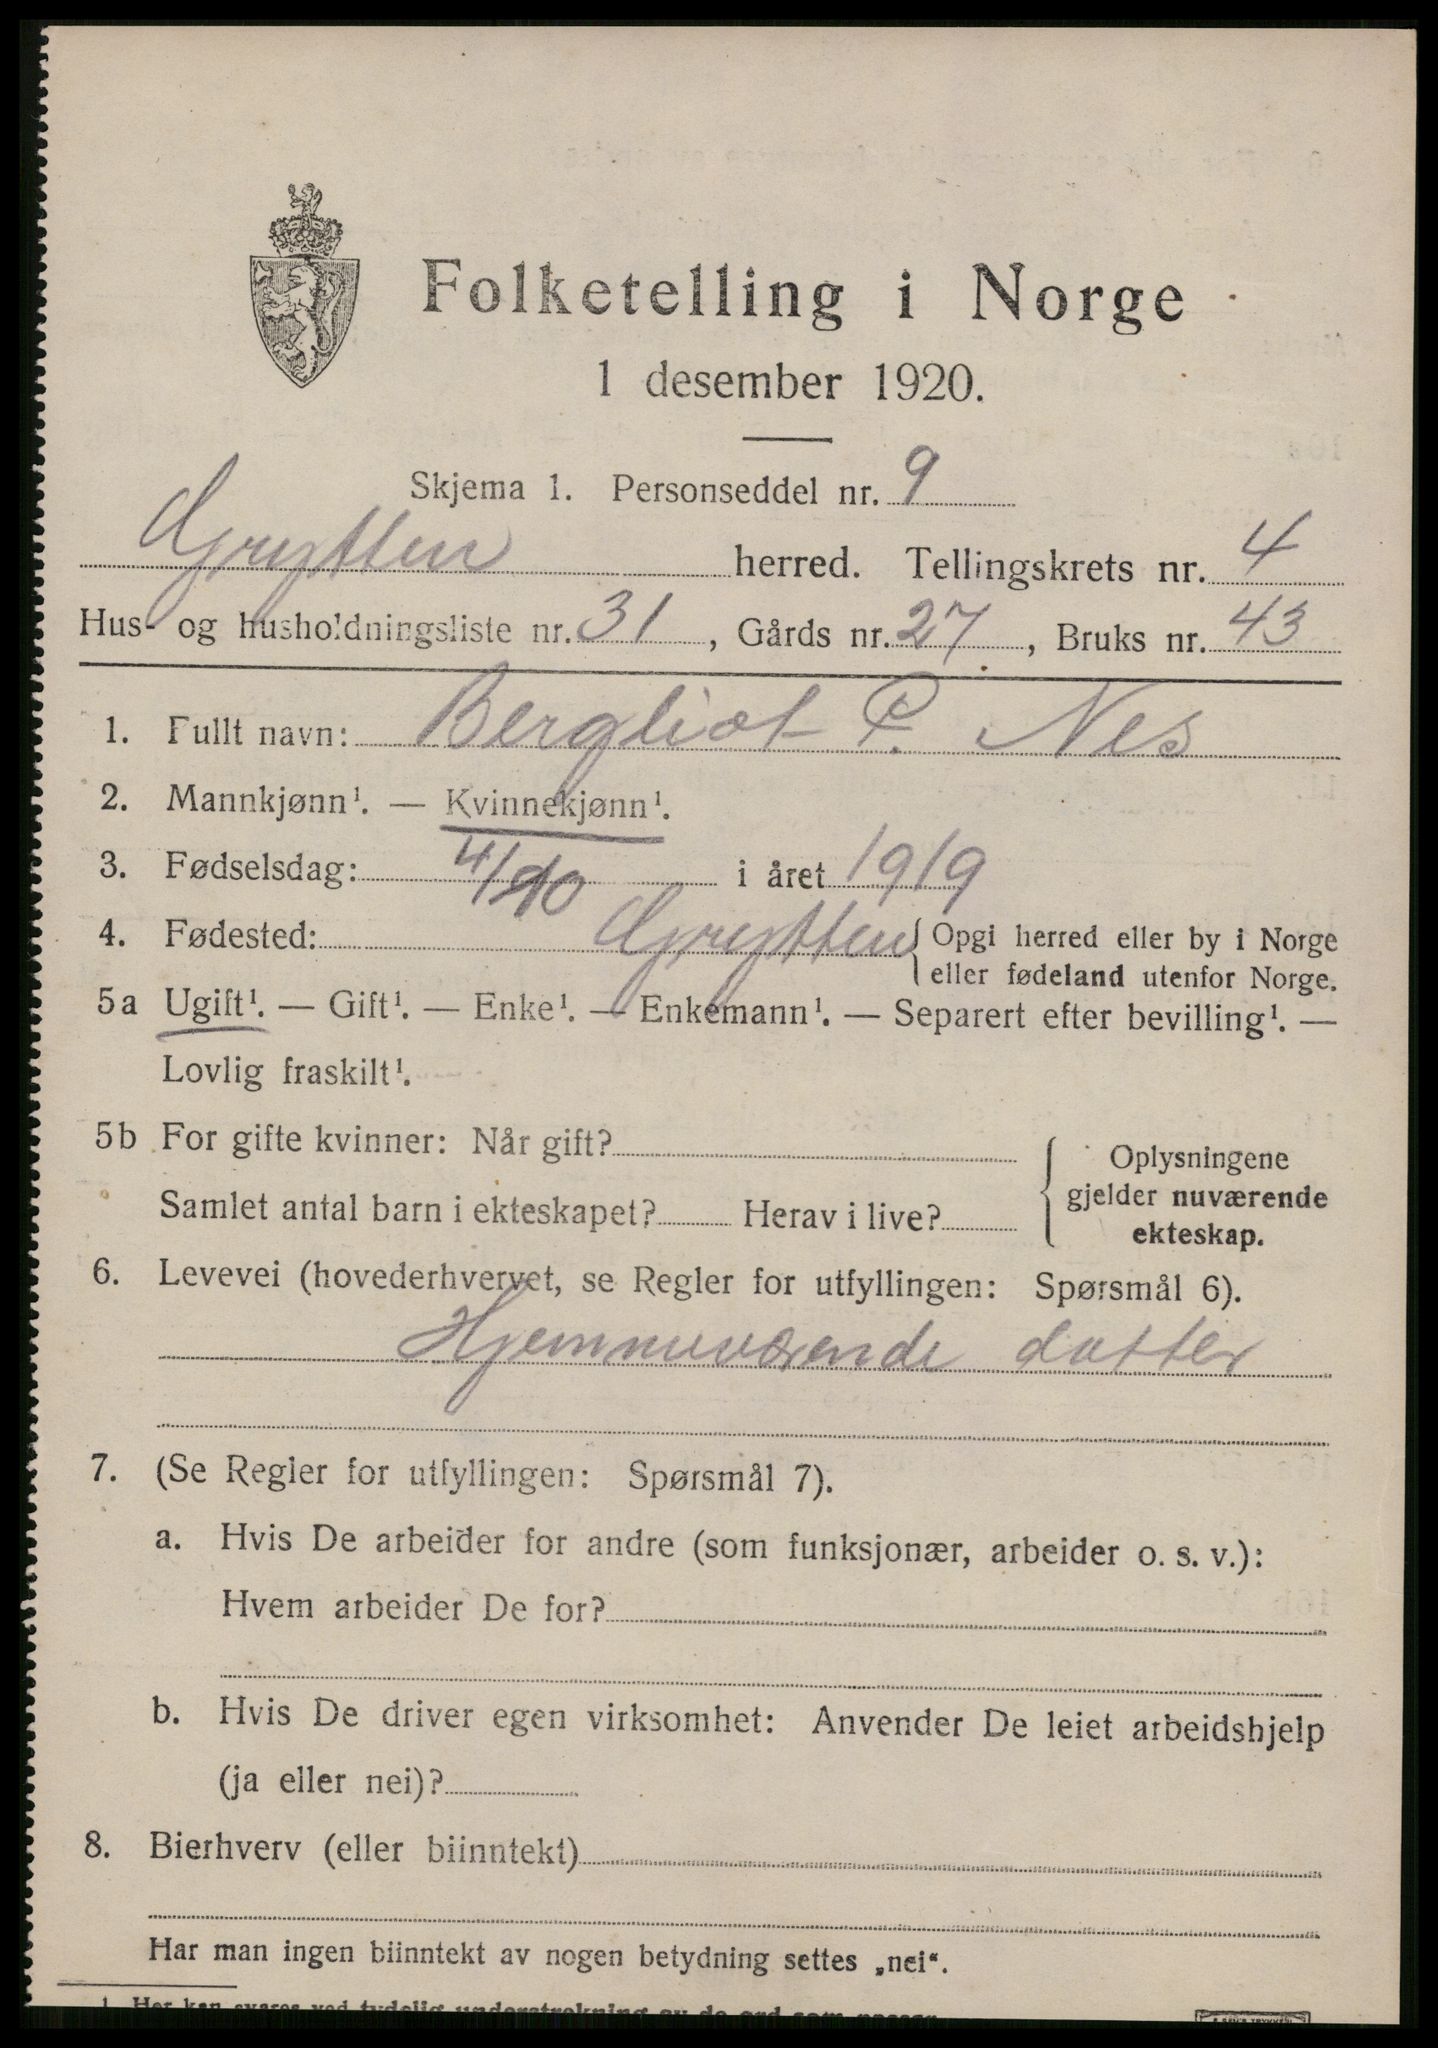 Folketelling i Norge
1 desember 1920.
Skjema 1. Personseddel nr. 9
Grytten herred. Tellingskrets nr. 4
Hus- og husholdningsliste nr. 31, Gårds nr. 27, Bruks nr. 43
1. Fullt navn: Bergliot P. Nes
2. Mannkjønn¹. — Kvinnekjønn¹.
3. Fødselsdag: 4/10 i året 1919
4. Fødested: Grytten { Opgi herred eller by i Norge
eller fødeland utenfor Norge.
5a Ugift¹. — Gift¹. — Enke¹. — Enkemann¹. — Separert efter bevilling¹. —
Lovlig fraskilt¹.
5b For gifte kvinner: Når gift?
Samlet antal barn i ekteskapet? Herav i live?
{ Oplysningene
gjelder nuværende
ekteskap.
6. Levevei (hovederhvervet, se Regler for utfyllingen: Spørsmål 6).
Hjemmeværende datter
7. (Se Regler for utfyllingen: Spørsmål 7).
a. Hvis De arbeider for andre (som funksjonær, arbeider o. s. v.):
Hvem arbeider De for?
b. Hvis De driver egen virksomhet: Anvender De leiet arbeidshjelp
(ja eller nei)?
8. Bierhverv (eller biinntekt)
Har man ingen biinntekt av nogen betydning settes „nei“.
1 Her kan svares ved tydelig understrekning av de ord som passer.